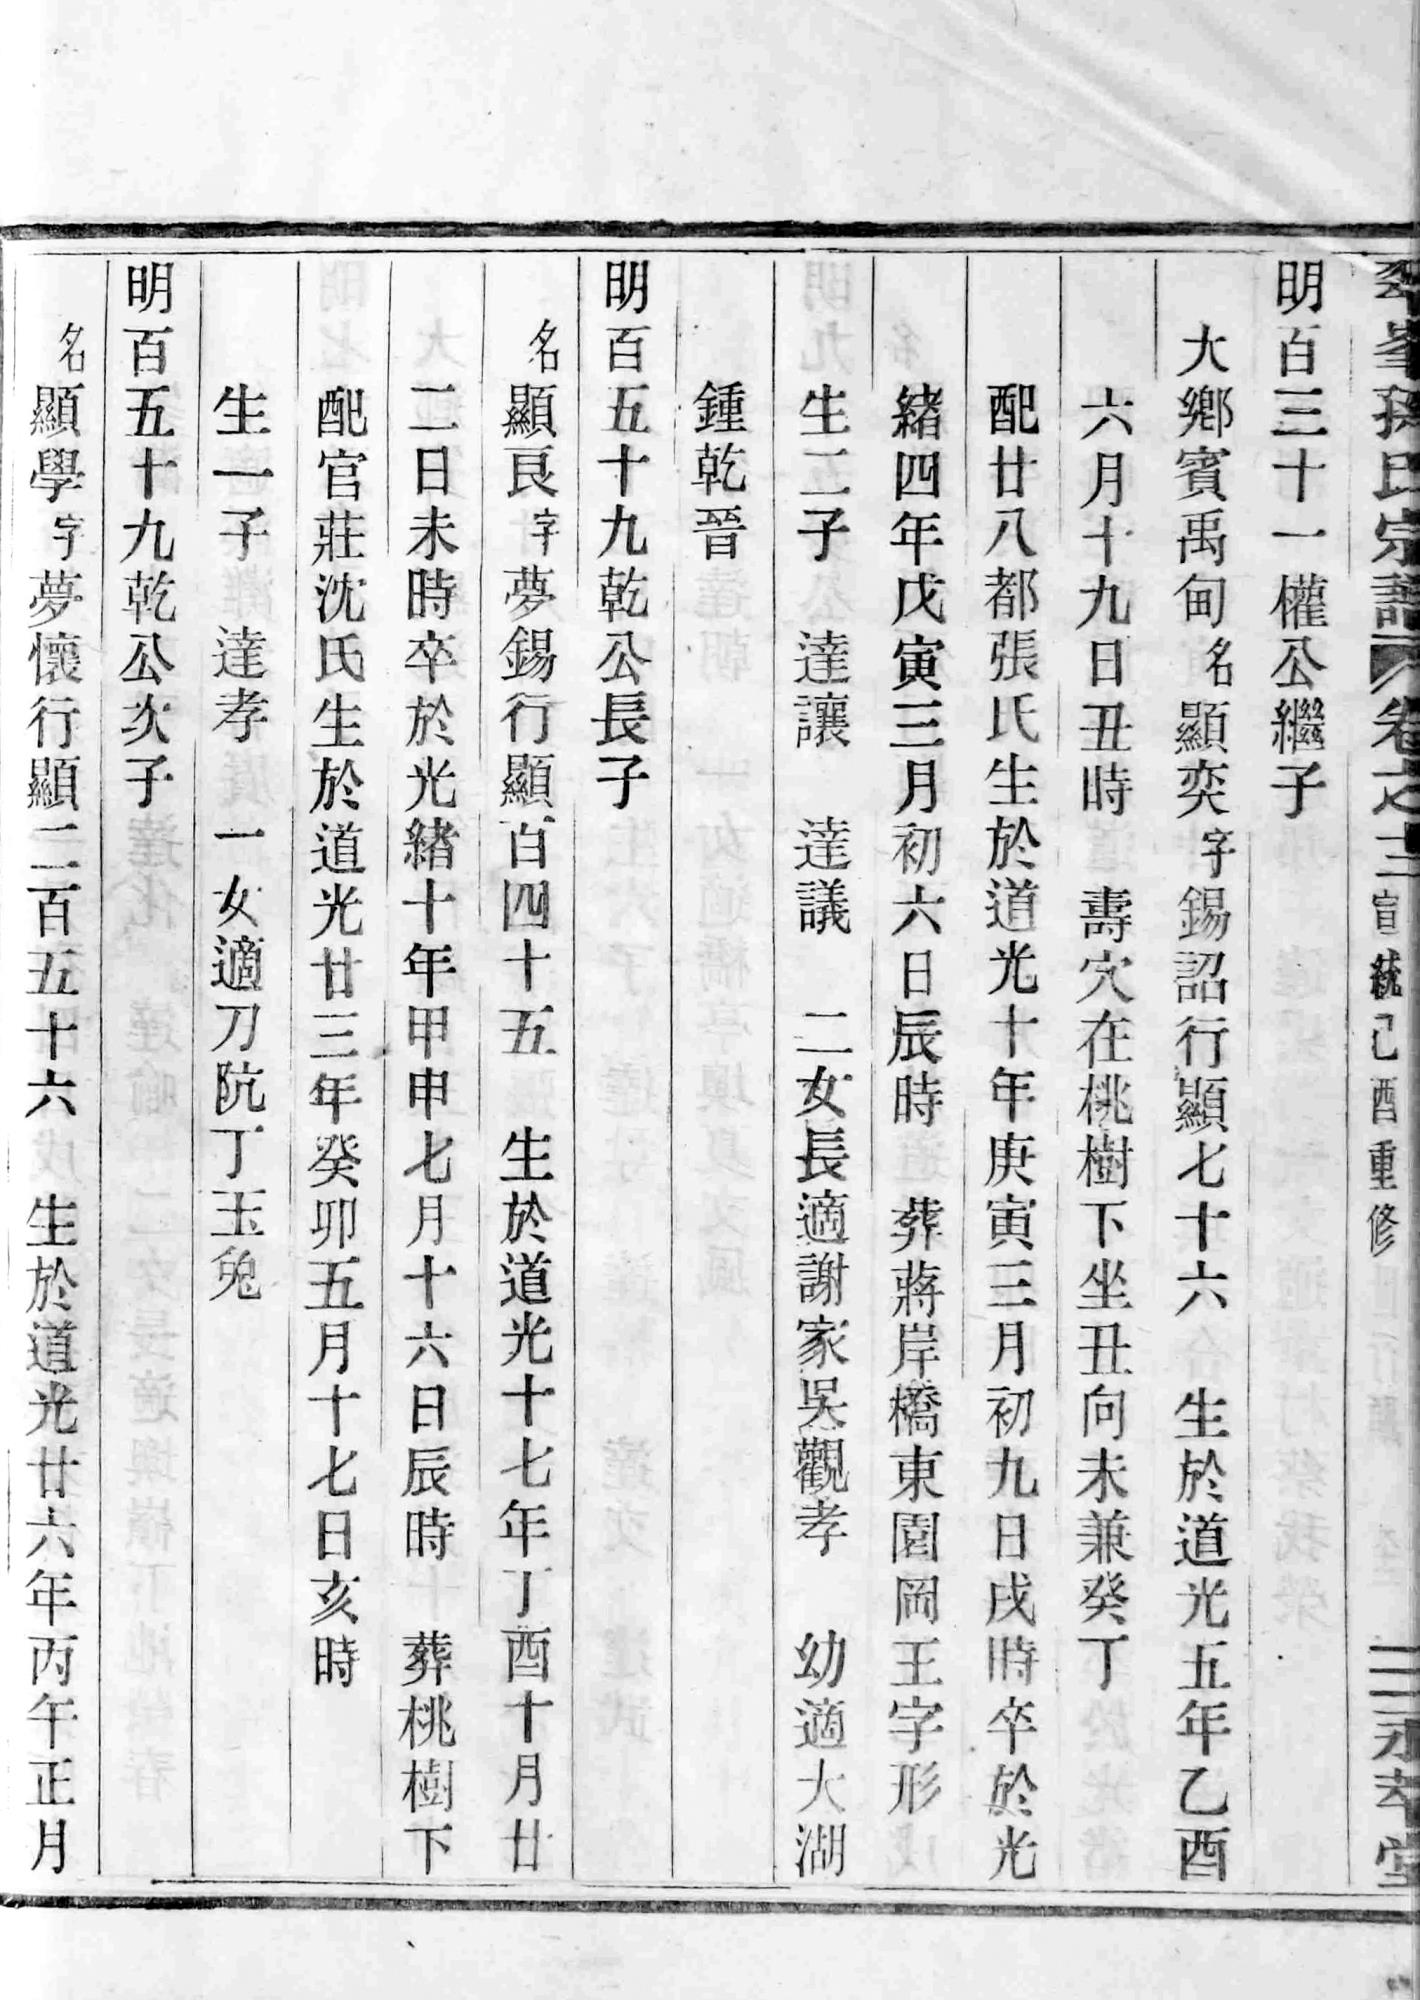 翠峯孫氏宗譜 卷之十三 宣統己酉重修 二 永芓堂
明百三十一權公繼子
大鄉賓禹甸名顯奕字錫詔行顯七十六 生於道光五年乙酉
六月十九日丑時 壽穴在桃樹下坐丑向未兼癸丁
配廿八都張氏生於道光十年庚寅三月初九日戌時卒於光
緒四年戊寅三月初六日辰時 葬蔣岸橋東園岡王字形
生二子 達讓 達議 二女長適謝家吳觀孝 幼適大湖
鍾乾晉
明百五十九乾公長子
名顯良字夢錫行顯百四十五 生於道光十七年丁酉十月廿
二日未時卒於光緒十年甲申七月十六日辰時 葬桃樹下
配官莊沈氏生於道光廿三年癸卯五月十七日亥時
生一子 達孝 一女適刀阬丁玉兔
明百五十九乾公次子
名顯學字夢懷行顯二百五十六 生於道光廿六年丙午正月